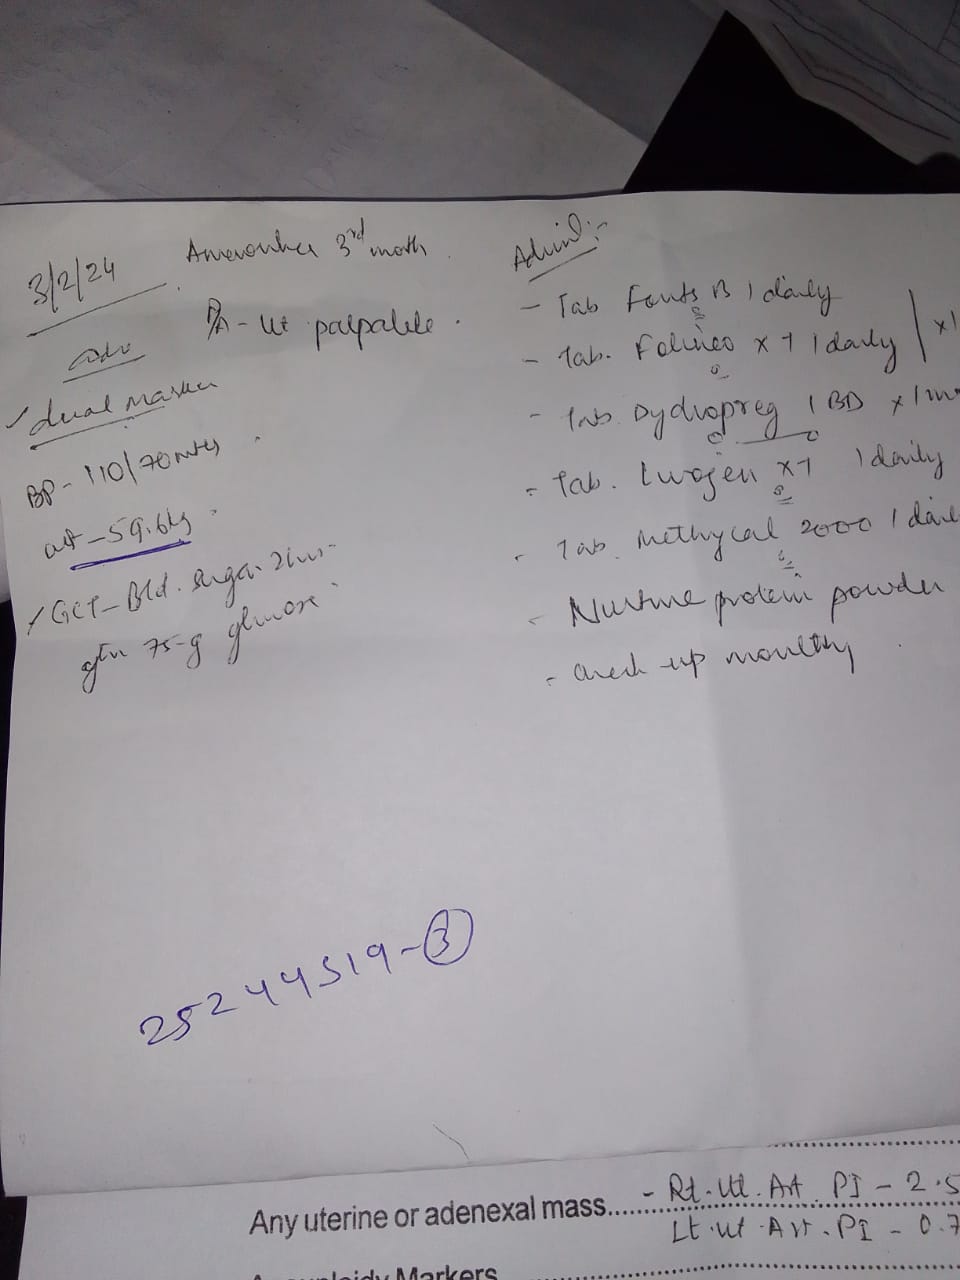 3/2/24 Amenorrhea 3rd month
P/A - Ut palpable.
Adv
✓dual marker
BP - 110/70
wt - 59.6kg
✓GCT - Bld. Sugar 2hrs
75-g glucose
- Tab B 1 daily
- Tab. x 7 1 daily x1
- Tab. Dydropreg 1 BD x 1
- Tab. x7 1 daily
- Tab. Methycal 2000 1
- protein powder
- check up monthly
25244519-3
Any uterine or adenexal mass...... - Rt. Ut. Art. PI - 2.5
Lt. Ut. Art. PI - 0.7
Markers